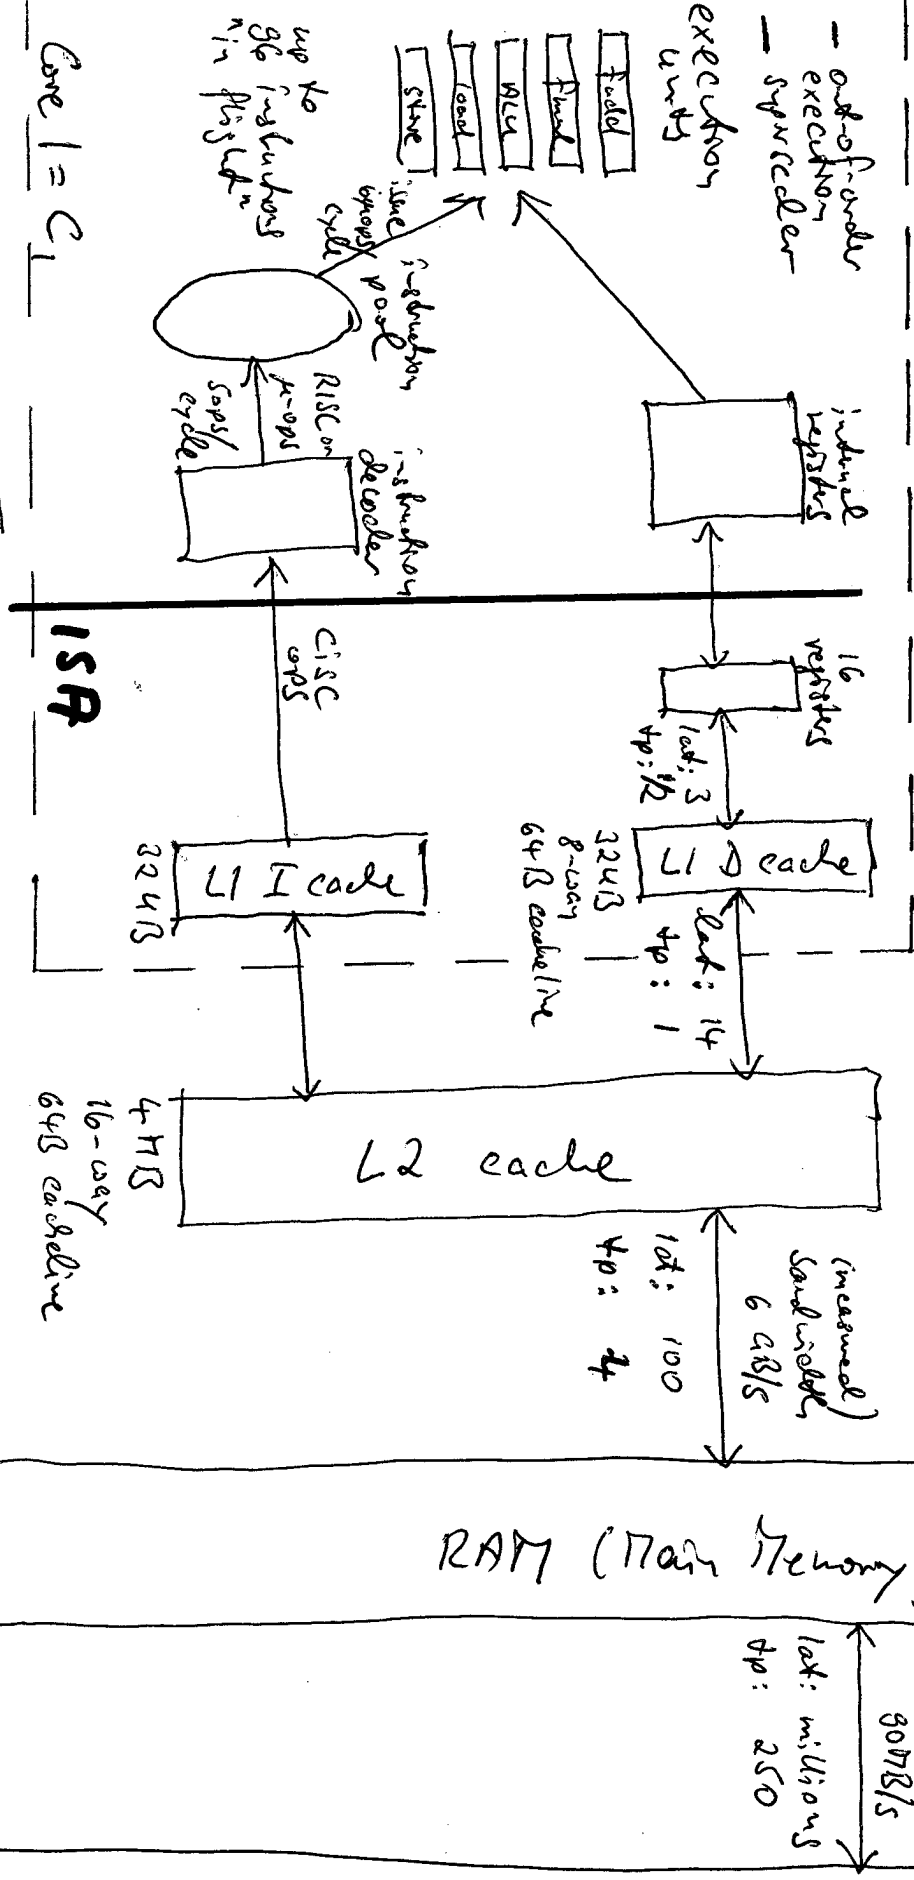 - out-of-order
execution
- superscalar
execution
units
fadd
fmul
ALU
load
store
up to
96 instructions
"in flight"
Core 1 = C1
issue
6 μops/
cycle
instruction
pool
RISC
μ-ops
5 ops/
cycle
instruction
decoder
internal
registers
ISA
CISC
ops
16
registers
lat: 3
tp: 1/2
L1 I cache
32 KB
L1 D cache
32 KB
8-way
64B cacheline
lat: 14
tp: 1
L2 cache
4 MB
16-way
64B cacheline
lat: 100
tp:
(measured)
bandwidth
6 GB/s
RAM (Main Memory
lat: millions
tp: 250
MB/s